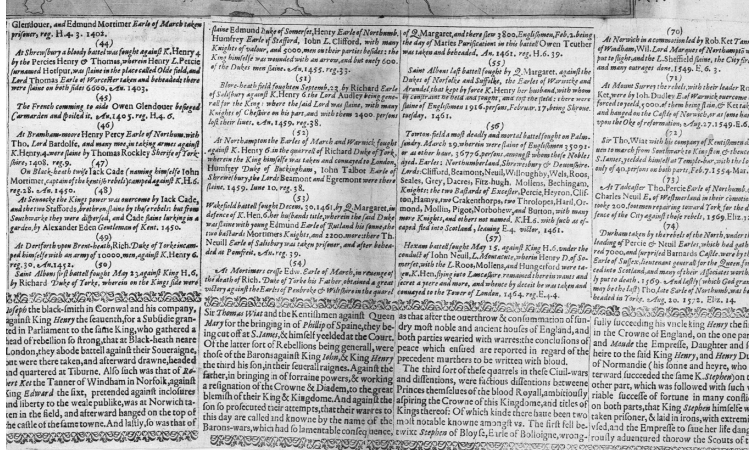 Glendouer, and Edmund Mortimer Earle of March taken
prisoner, reg. H.4. 3. 1402.
(44)
At Shrewsbury a bloody battell was fought against K.Henry 4
by the Percies Henry & Thomas, wherein Henry L.Percie
surnamed Hotspur, was slaine in the place called Olde field, and
Lord Thomas Earle of Worcester taken and beheaded; there
were slaine on both sides 6600, An. 1403.
(45)
The French comming to aide Owen Glendouer besieged
Carmarden and spoiled it, An. 1405. reg. H.4. 6.
(46)
At Bramham-moore Henry Percy Earle of Northum. with
Tho, Lord Bardolfe, and many moe, in taking armes against
K.Henry,4, were slaine by Thomas Rockley Sherife of York-
shire, 1408. reg.9.
(47)
On Black-heath twise Iack Cade (naming himselfe Iohn
Mortimer, captain of the kentish rebels) camped against K,H,6.
reg.28. An. 1450.
(48)
At Senocke the Kings power was ouercome by Iack Cade,
and the two Staffords, brethren, slaine by those rebels: but from
Southwarke they were dispersed, and Cade slaine lurking in a
garden, by Alexander Eden Gentleman of Kent. 1450.
(49)
At Dertforth vpon Brent-heath, Rich. Duke of Yorke incam-
ped himselfe with an army of 10000. men, against K,Henry 6.
reg.30, An.1452.
(50)
Saint Albons first battell fought May 23 against K,H,6,
by Richard Duke of Yorke, wherein on the Kings side were
slaine Edmund Duke of Somerset, Henry Earle of Northumb.
Humfrey Earle of Stafford, Iohn L.Clifford, with many
Knights of valour, and 5000, men on their parties besides: the
King himselfe was wounded with an arrow, and but onely 600.
of the Dukes men slaine, An.1455. reg.33.
(51)
Blore-heath field foughten Septemb.23, by Richard Earle
of Salisbury against K, Henry 6 the Lord Audley being gene-
rall for the King: where the said Lord was slaine, with many
Knights of Cheshire on his part, and with them 2400 persons
lost their liues, An, 1459, reg.38.
(52)
At Northampton the Earles of March and Warwick fought
against K, Henry 6. in the quarrell of the Lord Duke of York,
wherein the King himselfe was taken and conuayed to London,
Humfrey Duke of Buckingham, Iohn Talbot Earle of
Shrewsbury, the Lords Beamont and Egremont were there
slaine, 1459. Iune 10, reg.38.
(53)
Wakefeild battell fought Decem, 30, 1461, by Q,Margaret, in
defence of K.Hen,6, her husbands title, wherein the said Duke
was slaine with young Edmund Earle of Rutland his sonne, the
two bastard Mortimers Knights, and 2200. more there Th,
Neuill Earle of Salisbury was taken prisoner, and after behea-
ded at Pomfreit, An. reg.39.
(54)
At Mortimers crosse Edw. Earle of March, in reuenge of
the death of Rich, Duke of Yorke his Father, obtained a great
victory against the Earles of Penbroke & Wilshire in the quarrel
of Q,Margaret, and there slew 3800, Englishmen, Feb.2. being
the day of Maries Purification in this battell Owen Teuther
was taken and beheaded, An, 1461. reg.H.6. 39.
(55)
Saint Albons last battell fought by Q.Margaret, against the
Dukes of Norfolke and Suffolke, the Earles of Warwicke and
Arundel that kept by force K.Henry her husband, with whom
in constraint he held and fought, and lost the field: there were
slaine of Englishmen 1916. persons, February 17, being Shroue
tuesday, 1461.
(56)
Towton-field a most deadly and mortal battell fought on Palm-
sunday, March 29, wherein were slaine of Englishmen 35091.
or as other haue, 37676 persons, amongst whom these Nobles
dyed. Earles; Northumberland, Shrewsbury & Deuonshire,
Lords: Clifford, Beamont, Neuill, Willoughby, Wels, Roos,
Scales, Grey, Dacres, Fitz-hugh, Mollens, Bechingam,
Knights: the two Bastards of Excester, Percie, Heyron, Clif-
ton, Hamys, two Crakenthorps, two Throlopes, Haril, Or-
mond, Mollin, Pigot, Norbohew, and Burton, with many
more Knights, and others not named, K.H.6. with such as es-
caped fled into Scotland, leauing E.4. victor, 1461.
(57)
Hexam battell fought May 15, against K.H.6. vnder the
conduit of Iohn Neuill, L.Montacute, wherein Henry D.of So-
merset, with the L.Roos, Mollens, and Hungerford were ta-
ken, K.Hen, flying into Lancashire remained therein wants and
secret a yeere and more, and whence by deceit he was taken and
conuayed to the Tower of London, 1464. reg.E.4.4.
(70)
At Norwich in a commotion led by Rob. Ket Tan
of Windham, Wil. Lord Marques of Northampton
put to flight, and the L.Sheffeild slaine, the City
and many outrages done, 1549. E.6.3.
(71)
At Mount Surrey the rebels, with their leader Ro
Ket, were by Ioh. Dudley E.of Warwick ouercome
forced to yeeld, 4000. of them being slain, & Ket taken
and hanged on the Castle of Norwich, or as some haue
vpon the Oke of reformation, Aug.27.1549.E.6.
(72)
Sir Tho, Wiat with his company of Kentishmen d
uen to march from Southwark to Kingston & thence
S.Iames, yeelded himself at Temple-bar, with the lo
only of 40. persons on both part, Feb.7. 1554. Mar.
(73)
At Todcaster Tho.Percie Earle of Northumb.
Charles Neuil E, of Westmerland in their commotion
tooke 200, footmen repairing toward York, for the d
fence of the City against those rebels, 1569. Eliz.12
(74)
Durham taken by the rebels of the North, vnder the
leading of Percie & Neuill Earles, which had gath
red 7000, and surprised Barnards Castle, were by the
Earle of Sussex lieutenant generall for the Queen, for
ced into Scotland, and many of their Associates worth
ly put to death, 1569. And lastly (which God grant
may be the last) Tho, late Earle of Northumb, was be
headed in Yorke. Aug, 20. 1572. Eliz. 14.
Ioseph the black-smith in Cornwall and his company,
against King Henry the seauenth, for a Subsidie gran-
ted in Parliament to the same King, who gathered a
head of rebellion so strong, that at Black-heath neare
London, they abode battell against their Soueraigne,
but were there taken, and afterward drawne, headed
and quartered at Tiburne. Also such was that of Ro-
bert Ket the Tanner of Windham in Norfolk, against
King Edward the sixt, pretended against inclosures
and liberty to the weale publike, was at Norwich ta-
ken in the field, and afterward hanged on the top of
the castle of the same towne. And lastly, so was that of
Sir Thomas Wiat and the Kentishmen against Queen
Mary for the bringing in of Phillip of Spaine, they be-
ing cut off at S. Iames, & himself yeelded at the Court.
Of the latter sort of Rebellions being generall, were
those of the Barons against King Iohn, & King Henry
the third his son, in their seuerall raignes. Against the
father, in bringing in of forraine powers, & working
a resignation of the Crowne & Diadem, to the great
blemish of their King & Kingdome. And against the
son so prosecuted their attempts, that their warres to
this day are called and knowne by the name of the
Barons-wars, which had so lamentable consequence,
as that after the ouerthrow & consummation of sun-
dry most noble and ancient houses of England, and
both parties wearied with warres: the conclusions of
peace which ensued are reported in regard of the
precedent murthers to be written with bloud.
The third sort of these quarrels in these Ciuil-wars
and dissentions, were factious dissentions betweene
Princes themselues of the blood Royall, ambitiously
aspiring the Crowne of this Kingdome, and titles of
Kings thereof: Of which kinde there haue been two
most notable knowne amongst vs. The first fell be-
twixt Stephen of Bloyse, Earle of Bolloigne, wrong-
fully succeeding his vncle king Henry the first
in the Crowne of England, on the one part
and Maude the Empresse, Daughter and
heire to the said King Henry, and Henry Du
of Normandie (his sonne and heyre, who
terward succeeded the same K. Stephen) on
other part, which was followed with such
riable successe of fortune in many conflicts
on both parts, that King Stephen himselfe w
taken prisoner, & laid in irons, with extremi
vsed, and the Empresse to saue her life dang
rously aduentured thorow the Scouts of t